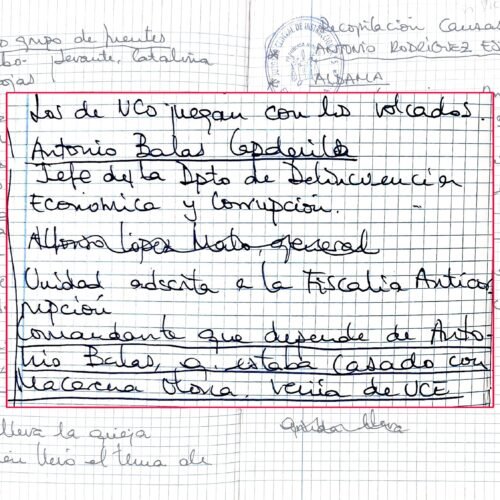 o grupo de fuentes
Levante, Cataluña
ojas
Recopilación Causas
ANTONIO RODRÍGUEZ ES
ALBANIA
Los de UCO juegan con los volcados.
Antonio Balas Capdevila
Jefe de la Dpto de Delincuencia
Economica y Corrupción.
Alfonso López Malo, general
Unidad adscrita a la Fiscalia Anticor
rupción
Comandante que depende de Anto-
nio Balas, q. estaba casado con
Macarena Otona, venia de UCE
lleva la queja
el tema de